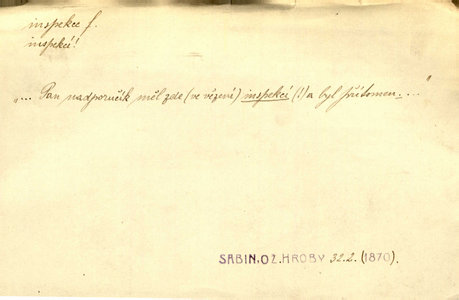 inspekce f.
inspekcí!
„... Pan nadporučík měl zde (ve vězení) inspekcí (!) a byl přítomen. ..."
SABIN, OŽ. HROBY 32.2. (1870).